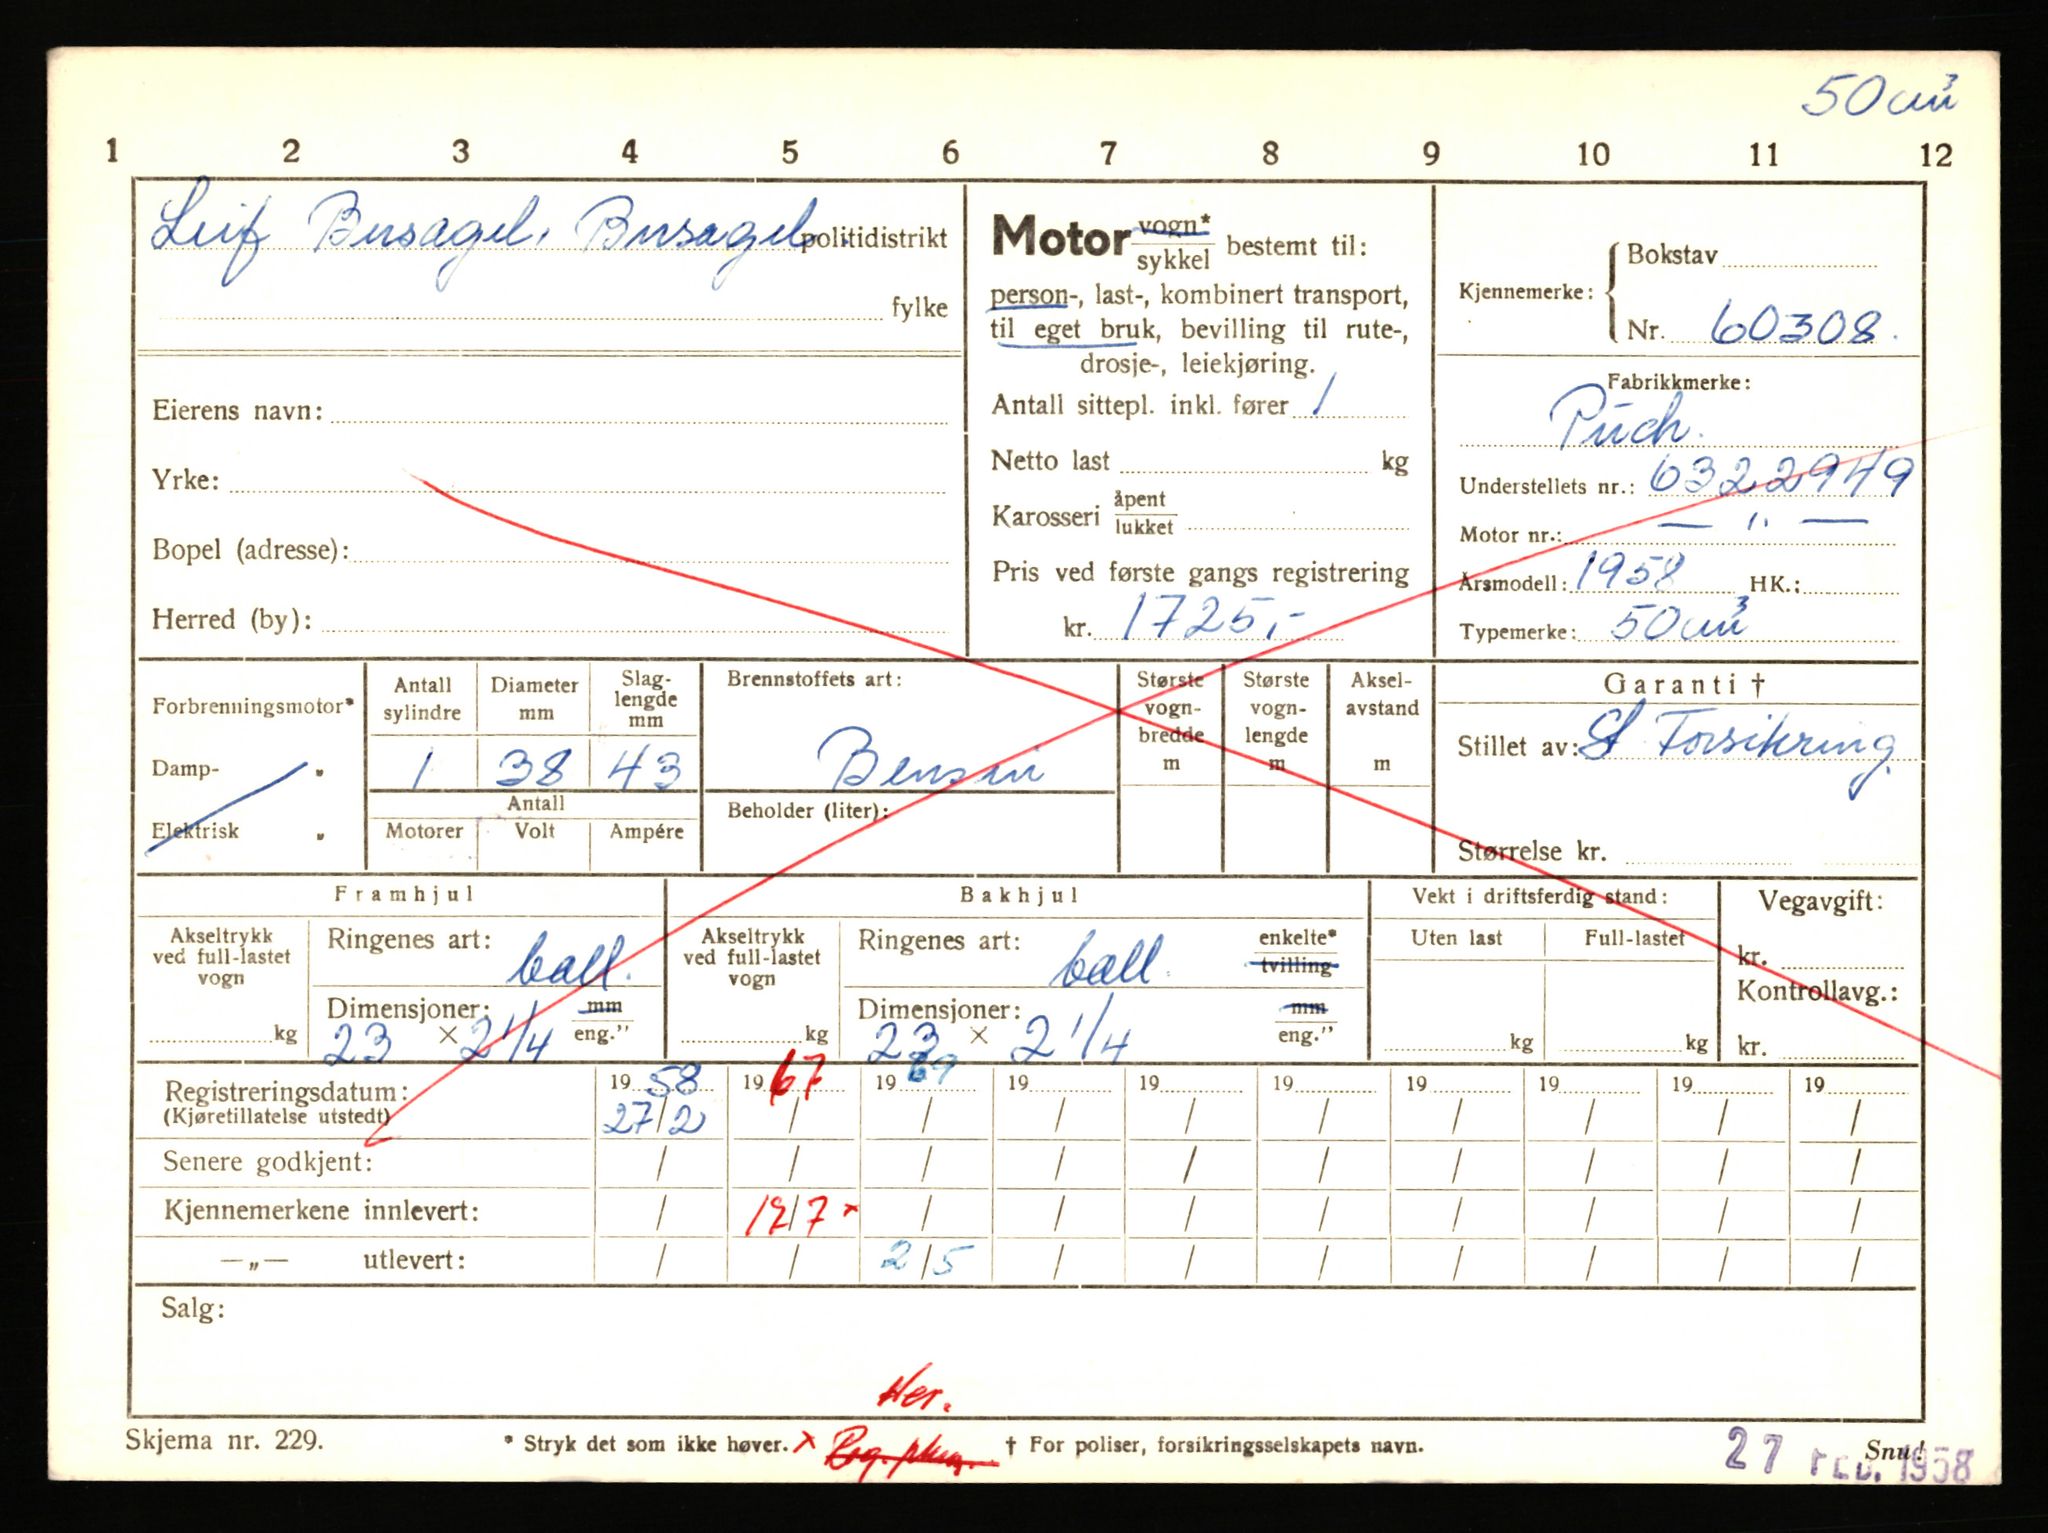 50 cm³
1 2 3 4 5 6 7 8 9 10 11 12
Leif Busagel. Busagel. politidistrikt
fylke
Eierens navn:
Yrke:
Bopel (adresse):
Herred (by):
Motor vogn* / sykkel bestemt til:
person-, last-, kombinert transport,
til eget bruk, bevilling til rute-,
drosje-, leiekjøring.
Antall sittepl. inkl. fører 1
Netto last kg
Karosseri åpent / lukket
Pris ved første gangs registrering
kr. 1725,-
Kjennemerke: Bokstav
Nr. 60308.
Fabrikkmerke:
Puch.
Understellets nr.: 6322949
Motor nr.: — " —
Årsmodell: 1958 HK.:
Typemerke: 50 cm³
Forbrenningsmotor*
Damp- "
Elektrisk "
Antall sylindre Diameter mm Slag-lengde mm
1 38 43
Antall
Motorer Volt Ampére
Brennstoffets art:
Bensin
Beholder (liter):
Største vogn-bredde m
Største vogn-lengde m
Aksel-avstand m
Garanti †
Stillet av: St Forsikring
Størrelse kr.
Framhjul
Akseltrykk ved full-lastet vogn
kg
Ringenes art: ball.
Dimensjoner: mm / eng."
23 × 2 1/4
Bakhjul
Akseltrykk ved full-lastet vogn
kg
Ringenes art: ball. enkelte* / tvilling
Dimensjoner: mm / eng."
23 × 2 1/4
Vekt i driftsferdig stand:
Uten last Full-lastet
kg kg
Vegavgift:
kr.
Kontrollavg.:
kr.
Registreringsdatum: 19 58 19 67 19 69 19 19 19 19 19 19 19
(Kjøretillatelse utstedt) 27/2 / / / / / / / / /
Senere godkjent: / / / / / / / / / /
Kjennemerkene innlevert: / 12/7 × / / / / / / / /
—„— utlevert: / / 2/5 / / / / / / /
Salg:
Her.
Skjema nr. 229. * Stryk det som ikke høver. × † For poliser, forsikringsselskapets navn. Snu!
27 FEB. 1958